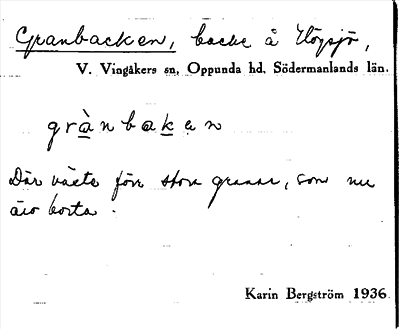 Granbacken, backe å Högsjö,
V. Vingåkers sn, Oppunda hd, Södermanlands län.
grànbakan
Där växte förr stora granar, som nu
äro borta.
Karin Bergström 1936.